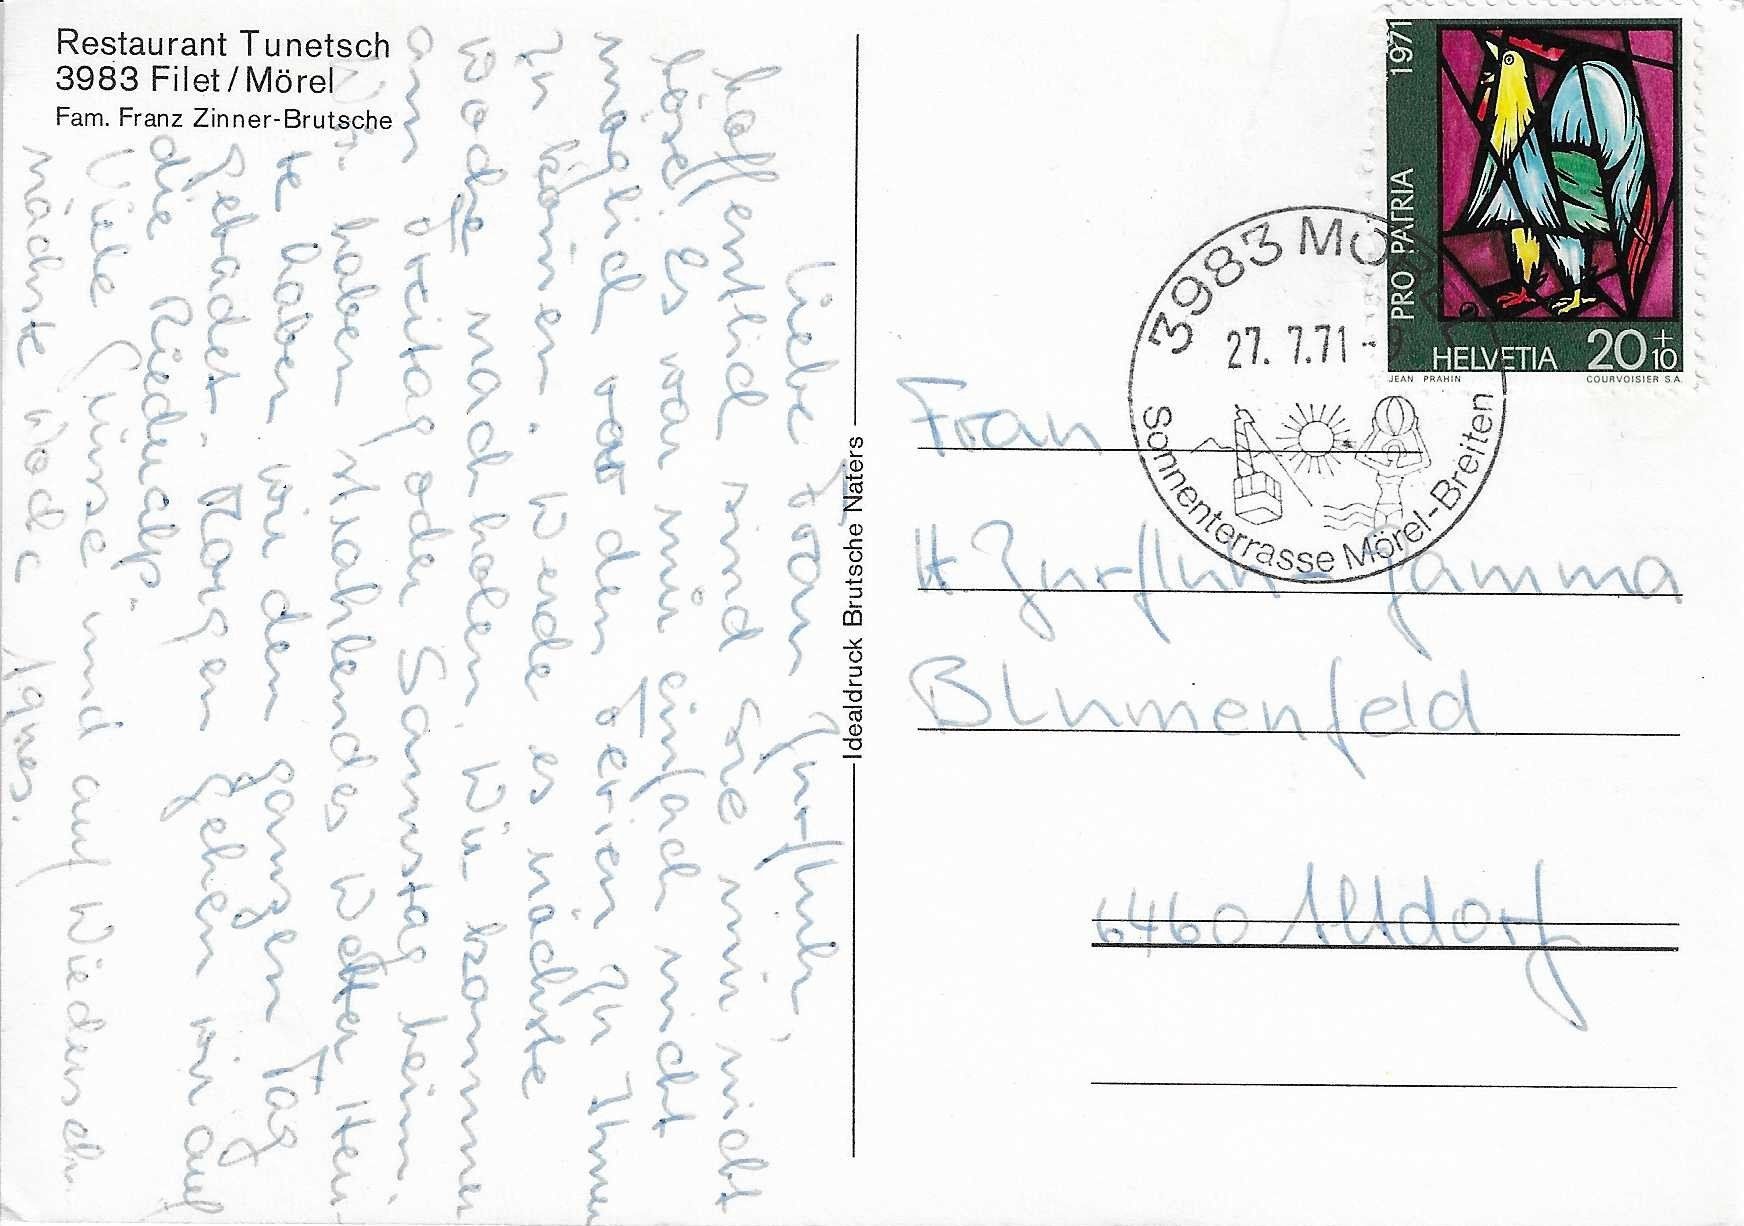 Restaurant Tunetsch
3983 Filet/Mörel
Fam. Franz Zinner-Brutsche
Liebe Frau Zurfluh,
hoffentlich sind Sie mir nicht
böse! Es war mir einfach nicht
möglich vor den Ferien zu Ihnen
zu kommen. Werde es nächste
Woche nachholen. Wir kommen
am Freitag oder Samstag heim.
Wir haben strahlendes Wetter. Heu-
te haben wir den ganzen Tag
gebadet. Morgen gehen wir auf
die Riederalp.
Viele Grüsse und auf Wiedersehn
nächste Woche Agnes.
Idealdruck Brutsche Naters
PRO PATRIA 1971
HELVETIA 20+10
JEAN PRAHIN COURVOISIER S.A.
3983 MÖREL
27. 7.71-9
Sonnenterrasse Mörel-Breiten
Frau
H. Zurfluh-Gamma
Blumenfeld
6460 Altdorf